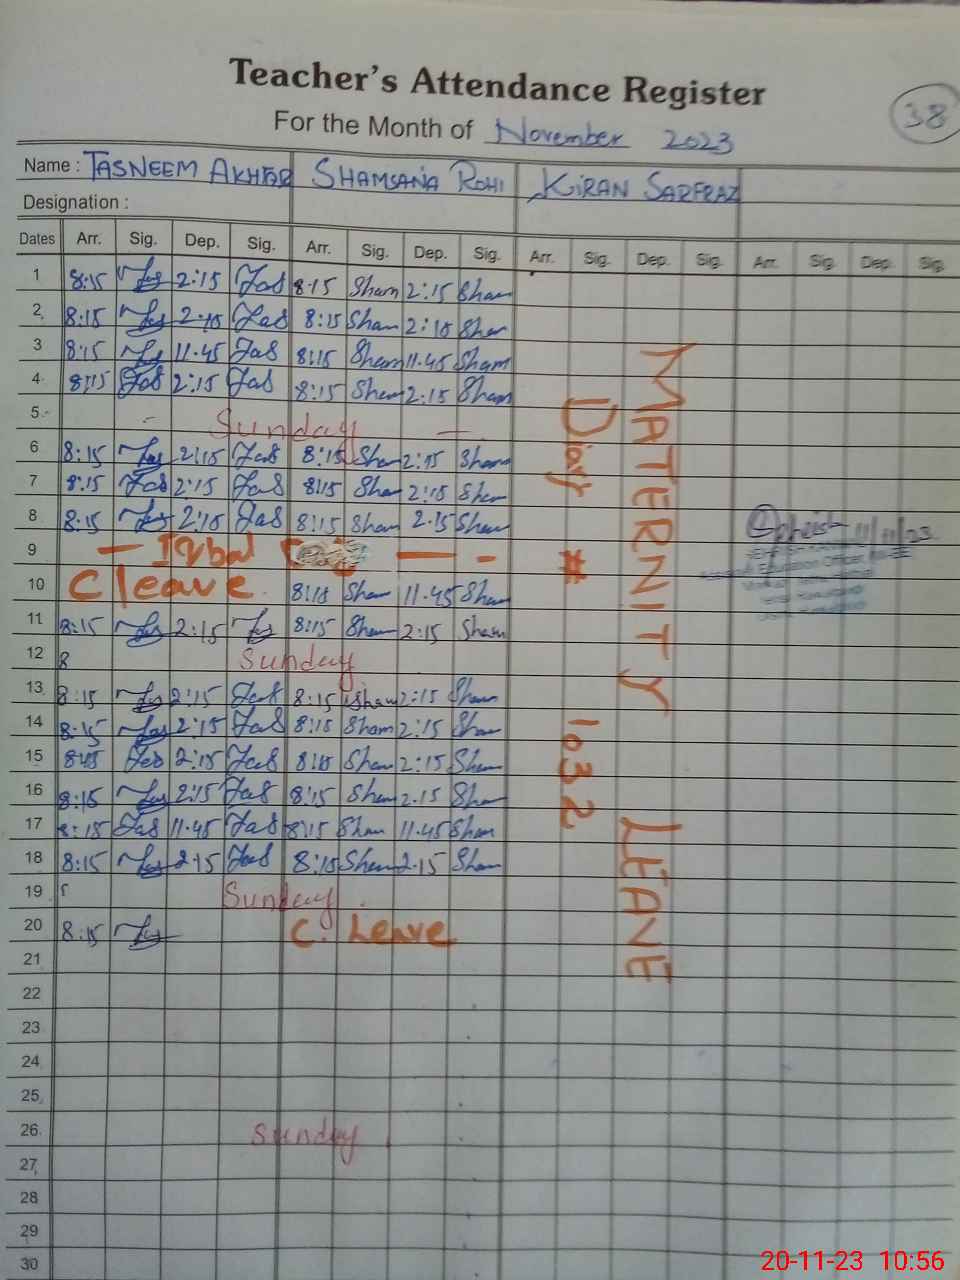 Teacher's Attendance Register
38
For the Month of November 2023
Name : TASNEEM AKHTAR SHAMSANA ROHI KIRAN SARFRAZ
Designation :
Dates Arr. Sig. Dep. Sig. Arr. Sig. Dep. Sig. Arr. Sig. Dep. Sig. Arr. Sig. Dep. Sig.
1 8:15 2:15 Tas 8:15 Sham 2:15 Sham
2 8:15 2:15 Tas 8:15 Sham 2:15 Sham
3 8:15 11.45 Tas 8:15 Sham 11.45 Sham
4 8:15 Tas 2:15 Tas 8:15 Sham 2:15 Sham
5 Sunday
6 8:15 2:15 Tas 8:15 Sham 2:15 Sham
7 8:15 Tas 2:15 Tas 8:15 Sham 2:15 Sham
8 8:15 2:15 Tas 8:15 Sham 2.15 Sham
9 — Iqbal Day — -
10 C leave 8:15 Sham 11.45 Sham
11 8:15 2:15 8:15 Sham 2:15 Sham
12 8 Sunday
13 8:15 2:15 Tas 8:15 Sham 2:15 Sham
14 8:15 2:15 Tas 8:15 Sham 2:15 Sham
15 8:15 Tas 2:15 Tas 8:15 Sham 2:15 Sham
16 8:15 2:15 Tas 8:15 Sham 2.15 Sham
17 8:15 Tas 11.45 Tas 8:15 Sham 11.45 Sham
18 8:15 2.15 Tas 8:15 Sham 2.15 Sham
19 Sunday
20 8:15 C. Leave
21
22
23
24
25
26 Sunday
27
28
29
30
Diary # 1032
MATERNITY LEAVE
11/11/23
Education Officer
20-11-23 10:56